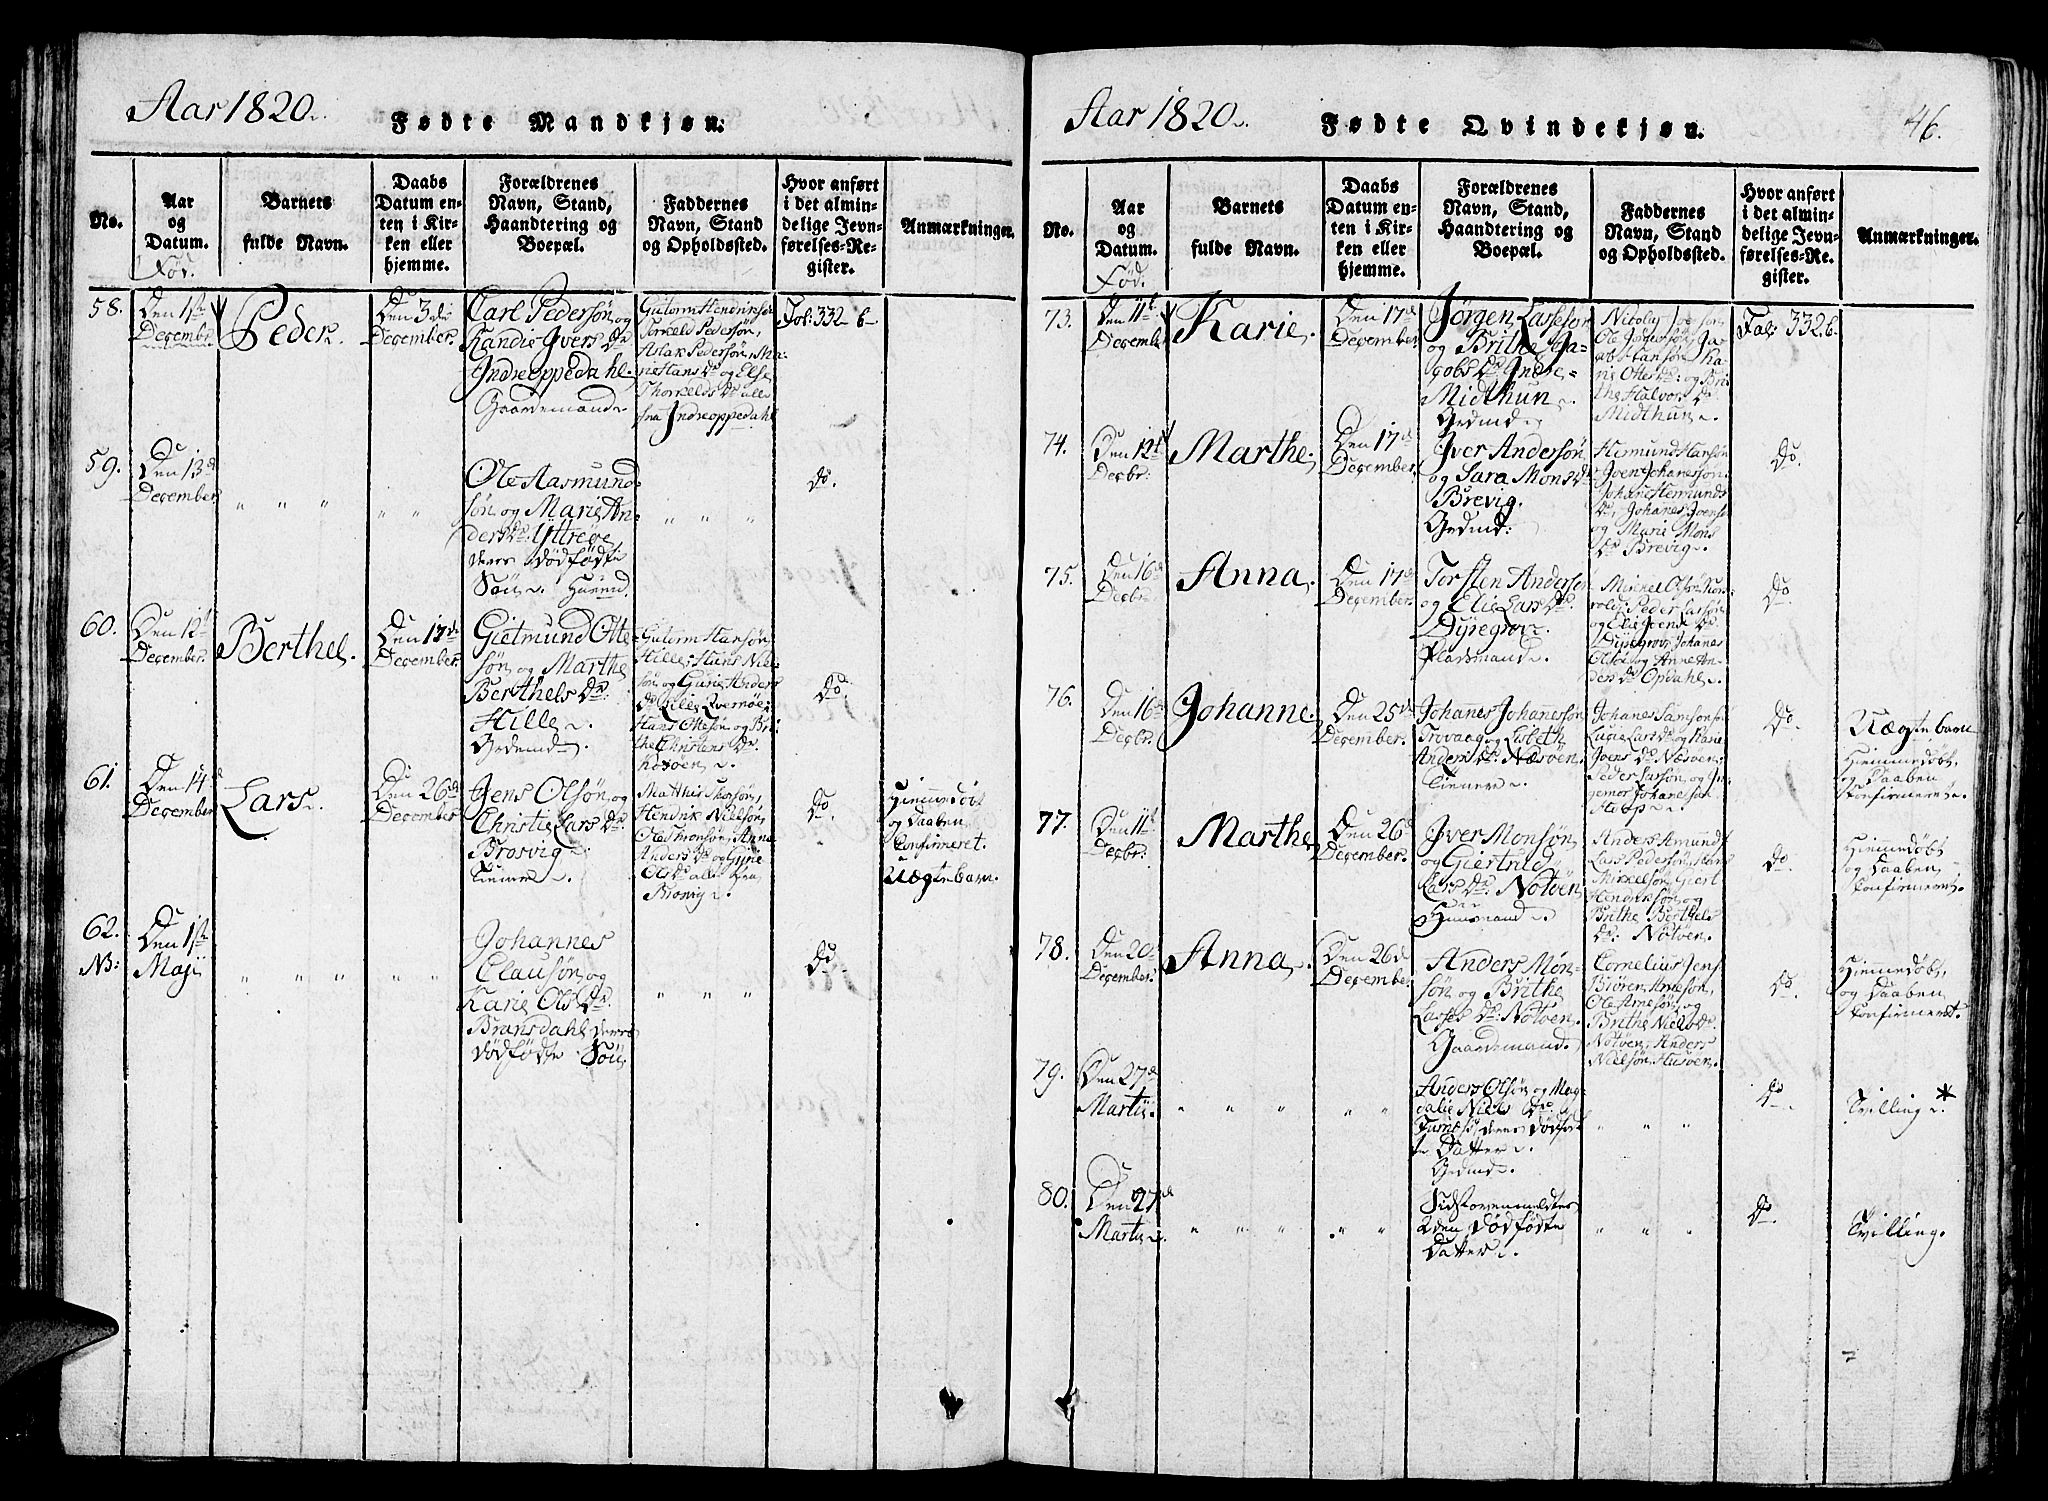 Aar 1820.
Fødte Mandkjøn.
No.
Aar
og
Datum.
Fød.
Barnets
fulde Navn.
Daabs
Datum en-
ten i Kir-
ken eller
hjemme.
Forældrenes
Navn, Stand,
Haandtering og
Boepæl.
Faddernes
Navn, Stand
og Opholdssted.
Hvor anført
i det almin-
delige Jevn-
førelses-Re-
gister.
Anmærkninger.
58.
Den 1st
Decembr
Peder.
Den 3de
December.
Carl Pedersøn og
Kandie Ivers Dr
Indreoppedahl.
Gaardemand.
Gutorm Hendriksøn
Torkeld Pedersøn,
Aslak Pedersøn, Ma-
rie Hans Dr og Else
Thorkelds Dr alle
fra Indreoppedahl
Fol: 332 b
59.
Den 13d
December.
" " "
" "
Ole Aasmund-
søn og Marie An-
ders Dr. Yttrøe
deres dödfödte
Sön.
" " "
do.
60.
Den 12t
December.
Berthel.
Den 17de
December.
Gietmund Otte-
søn og Marthe
Berthels Dr:
Hille.
Grdmd.
Gutorm Hansøn
Hille, Hans Niel-
søn og Gurie Anders
Dr Lille Qvernøe,
Hans Ottesøn og Bri-
the Christens Dr.
do.
61.
Den 14d
December
Lars.
Den 26de
December
Jens Olsøn og
Christie Lars Dr.
Brosvig
Tiener.
Matthis Thorsøn,
Hendrik Nielsøn,
Ole Thronsøn, Anna
Anders Dr og Gurie
Ols Dr alle fra
Brosvig.
do
Hiemmedöbt
og Daaben
Confirmeret.
Uægte barn.
62.
NB:
Den 1ste
Maji
" " " " "
Johannes
Clausøn og
Karie Ols Dr.
Bransdahl deres
dödfödte Sön
" " "
do
Aar 1820.
Fødte Qvindekjøn.
46.
No.
Aar
og
Datum.
Fød.
Barnets
fulde Navn.
Daabs
Datum en-
ten i Kir-
ken eller
hjemme.
Forældrenes
Navn, Stand,
Haandtering og
Boepæl.
Faddernes
Navn, Stand
og Opholdssted.
Hvor anført
i det almin-
delige Jevn-
førelses-Re-
gister.
Anmærkninger.
73.
Den 11t
Decembr
Karie.
Den 17d
December.
Jørgen Lassesøn
og Brithe Ja-
cobs Dr Indre-
Midthun.
Grdmd.
Nicolay Iversøn,
Ole Jørgensøn, Ja-
cob Hansøn, Ka-
rie Ottes Dr: og Bri-
the Halvors Dr
Midthun.
Fol: 332 b.
74.
Den 12t
Decbr:
Marthe.
Den 17d
December.
Iver Andersøn
og Sara Mons Dr
Brevig.
Grdmd:
Hermund Hansøn
Joen Johanesøn
Johane Hermunds
Dr, Johanes Joensø
og Marie Mons
Dr Brevig.
do.
75.
Den 16d
Decbr:
Anna.
Den 17d
December.
Torsten Andersøn
og Elie Lars Dr.
Dysegrov.
Pladsmand.
Mikkel Olsøn
Peder Larsøn
og Elie Jens Dr
Dysegrov, Johanes
Olsøn og Anne An-
ders Dr Opdahl.
do
76.
Den 16d
Decbr:
Johanne.
Den 25de
December.
Johanes Johanesøn
Trovaag og Lisbeth
Anders Dr. Næsøen,
Tienere.
Johanes Samsonsøn
Lucie Lars Dr og Karie
Joens Dr Næsøen,
Peder Larsøn, og In-
gemor Johanesdr
do
Uægte barn
Hiemmedöbt,
og Daaben
Confirmeret.
77.
Den 11t
Decbr:
Marthe
Den 26d
December.
Iver Monsøn
og Giertrud
Lars Dr. Notøen
Huusmand.
Anders Amunds
Lars Pedersøn, Hans
Mikkelsøn, Giert
Hendriksøn og
Brithe Berthels
Dr. Notøen.
do
Hiemmedöbt
og Daaben
Confirmeret.
78.
Den 20
December.
Anna.
Den 26d
December
Anders Møn-
søn og Brithe
Lasses Dr. Notøen.
Gaardemand.
Cornelius Jens
Biøren Arnesøn,
Ole Arnesøn, og
Brithe Niels Dr.
Notøen, Anders
Nielsøn, Husøen.
do.
Hiemmedöbt,
og Daaben
Confirmeret.
79.
Den 27d
Martii.
" " "
" "
Anders Olsøn og Mag-
dalie Niels Dr.
deres dödföd-
te Datter.
Grdmd.
" " "
do.
Tvilling. *
80.
Den 27d
Martii.
" " "
" "
Sidstommeldtes
2den dödfödte
Datter.
" " "
do.
Tvilling.